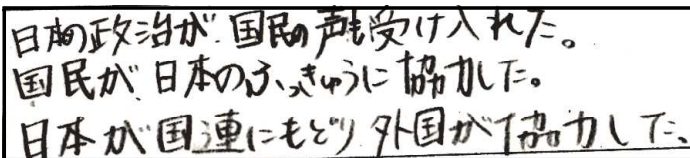 日本の政治が国民の声を受け入れた。
国民が日本のふっきゅうに協力した。
日本が国連にもどり外国が協力した、